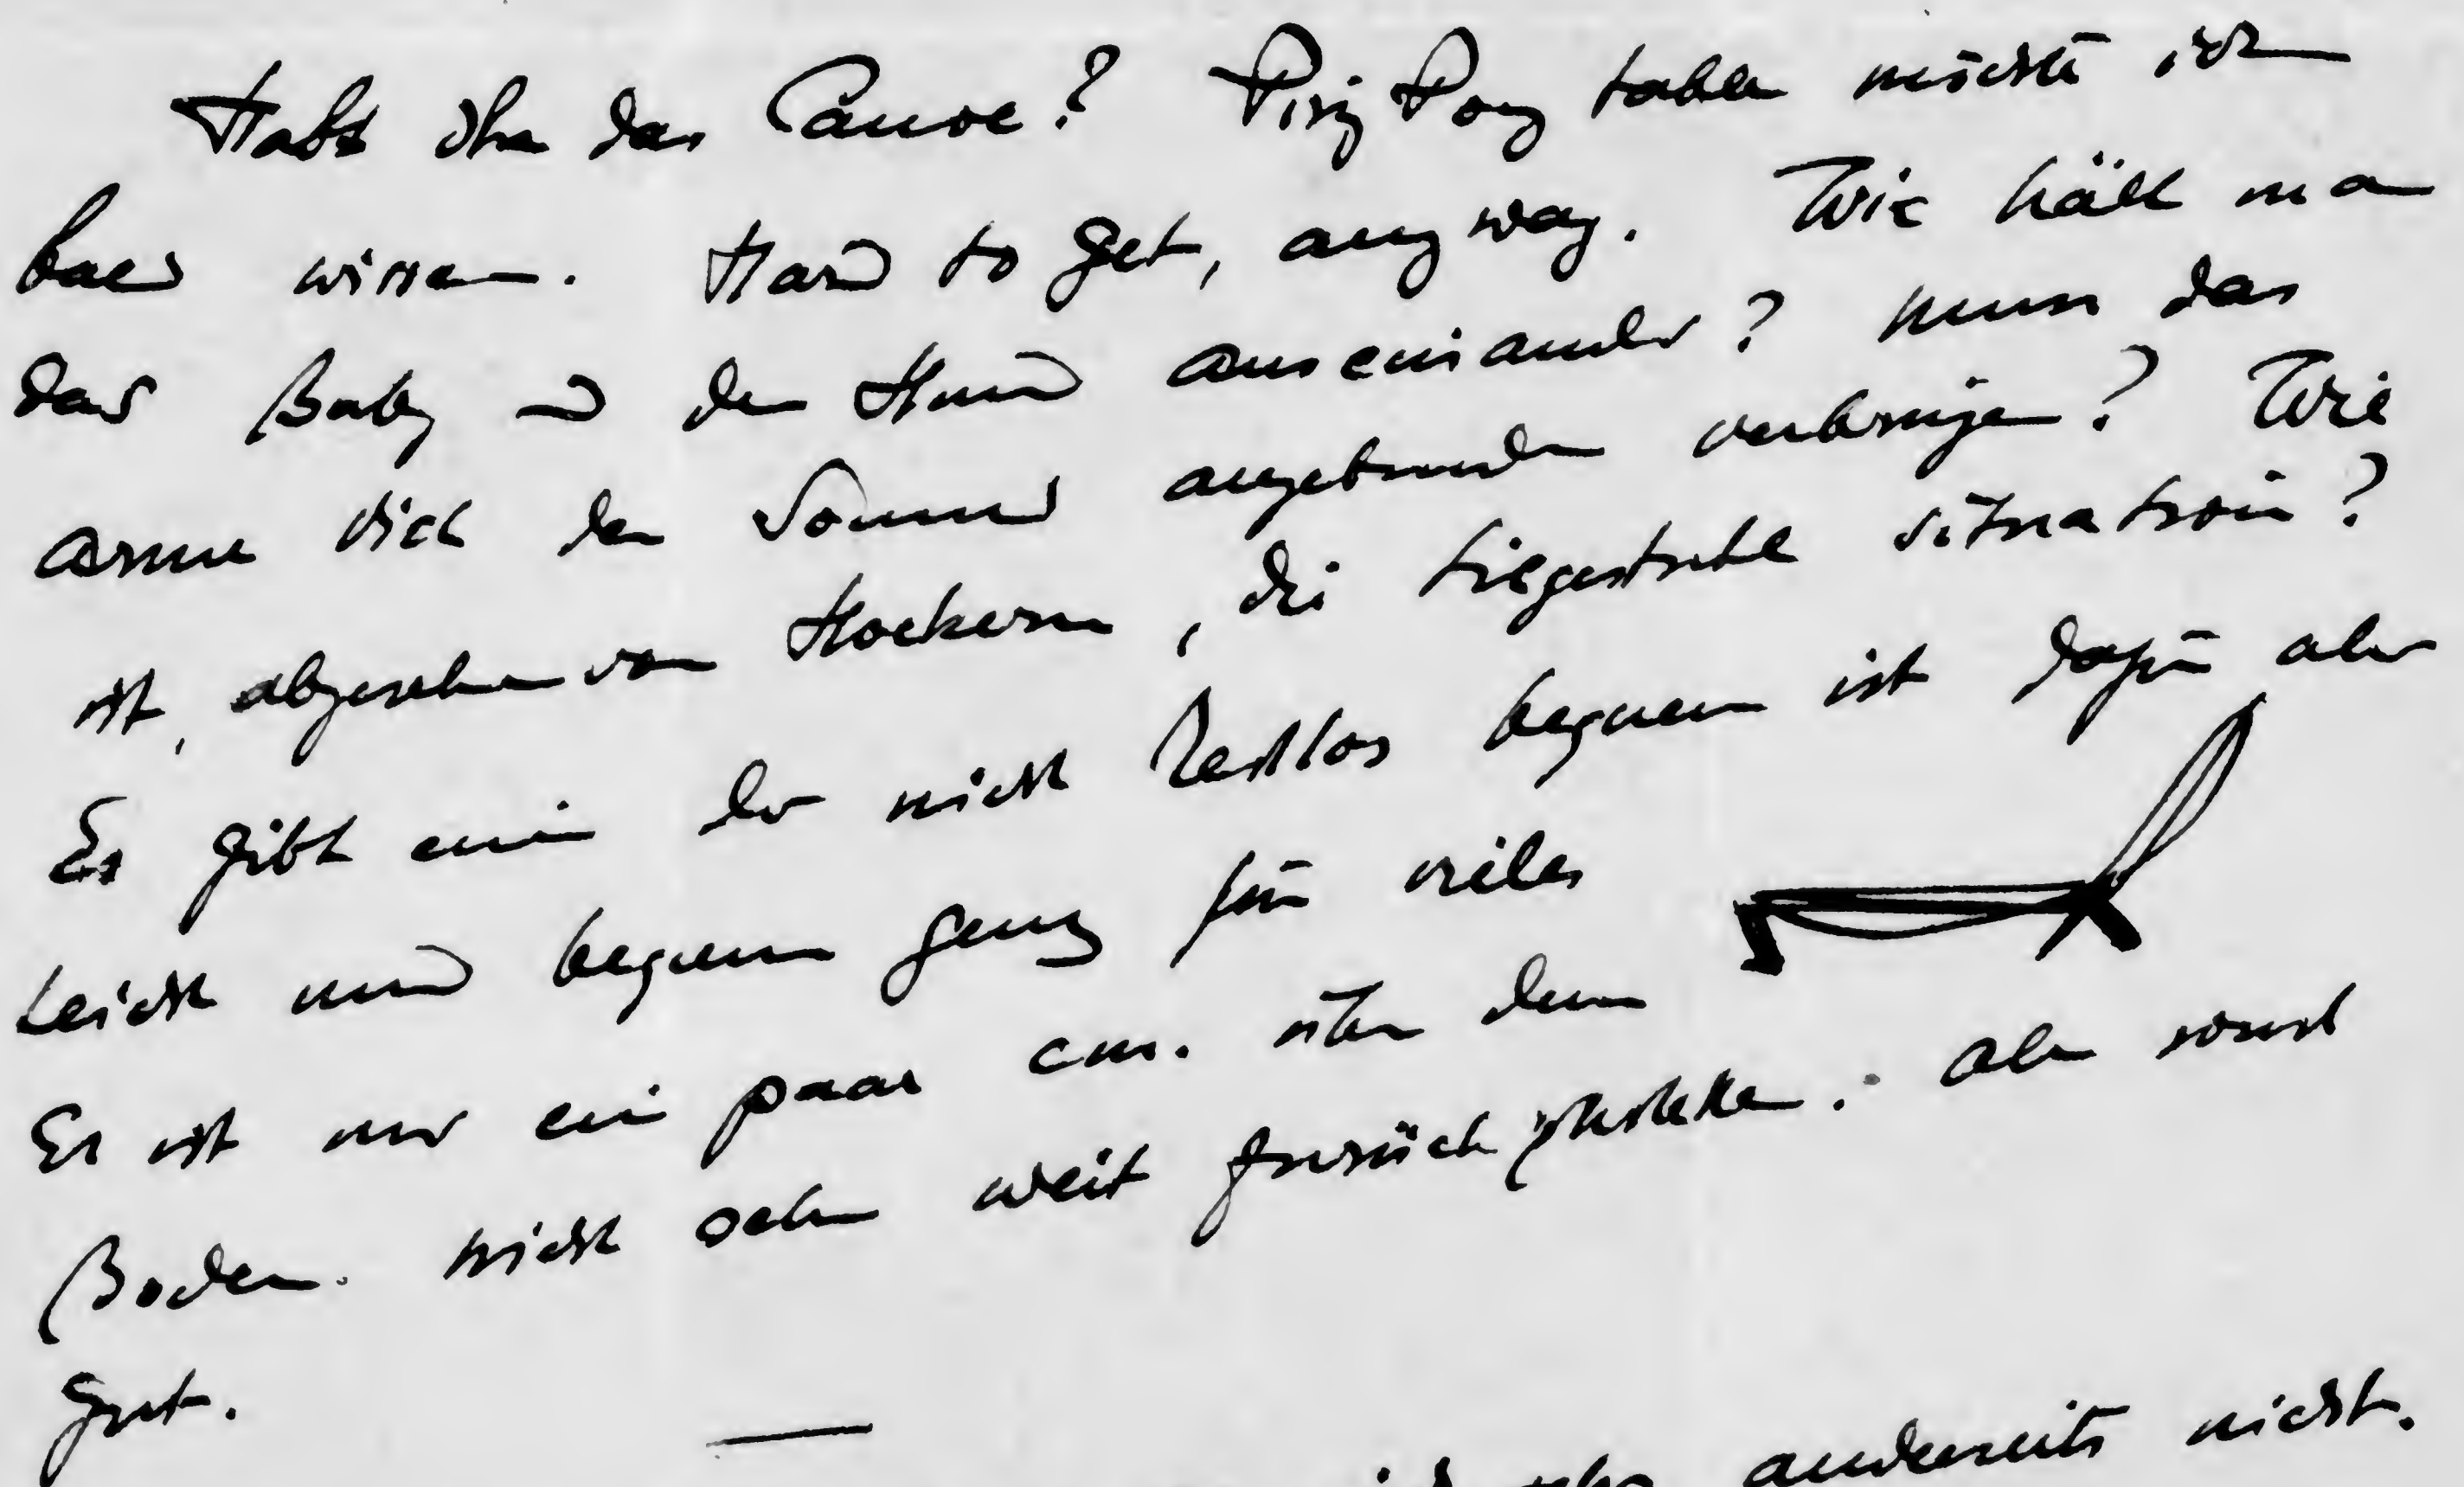 Habt Ihr das Canoe? Ping Pong table möchte ich
bald wissen. Hard to get, anyway. Wie hält ma
das Baby u den Hund auseinander? Muss das
arme Viech den Sommer angebunden verbringen? Wie
ist, abgesehen von Hockern, die Liegestuhl situation?
Es gibt ein der nicht restlos bequem ist dafür aber
leicht und bequem genug für vieles
Er ist nur ein paar cm. über dem
Boden. Nicht sehr weit zurück. Aber sonst
gut.
andererseits nicht.